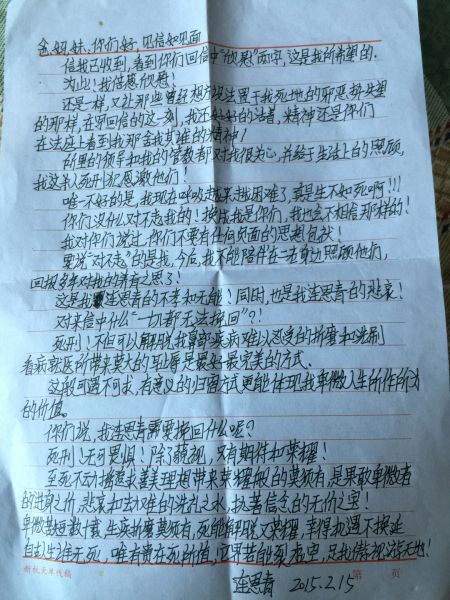 爸、妈、妹、你们好，见信如见面
信我已收到，看到你们回信中"欣慰"两字，这是我所希望的。
为此！我倍感欣慰！
还是一样，又让那些曾经想方设法置于我死地的邪恶势失望
的那样，在罗回信的这一刻，我还好好的活着，精神还是你们
在法庭上看到我那舍我其谁的精神！
所里的领导和我的管教都对我很关心，并给予生活上的照顾，
我这杀人死刑犯感激他们！
唯一不好的是，我现在呼吸越来越困难了，真是生不如死啊！！！
你们没什么对不起我的！换成我是你们，我也会不相信那样的！
我对你们说过，你们不要有任何负面的思想包袱！
要说"对不起"的是我，今后，我不能陪伴在一去身边照顾他们，
回报多年对我的养育之恩了！
这是我连恩青的不孝和无能！同时，也是我连恩青的悲哀！
对来信中什么"一切都无法挽回"？！
死刑！不但可以解脱我鼻部疾病难以忍受的折磨和洗刷
看病就医所带来莫大的耻辱是最好最完美的方式．
这般可遇不可求，有意义的归宿方式更能体现我卑微人生所作所为
的价值。
你们说，我连恩青需要挽回什么呢？
死刑！无可畏惧！除了藐视，只有期待和荣耀！
至死不动摇追求善美理想带来荣耀般的莫须有，是果敢卑微者
的进身之价，悲哀和去级难的洗礼之水，执着信念的无价之宝！
卑微某短数十载，生疾折磨莫须有，死能解脱又荣耀，幸得机遇不换延
自古人生谁无死，唯有贵在死价值，宝界若能裂苍空，足我傲视游天地！
连恩青 2015.2.15
新杭天单线稿
第 页